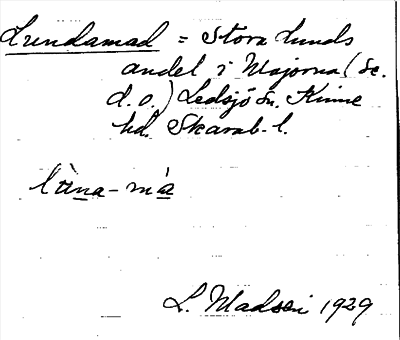 Lundamad = Stora Lunds
andel i Majorna (se.
d.o.) Ledsjö sn. Kinne
hd. Skarab. l.
lùna-má
L. Madsén 1929